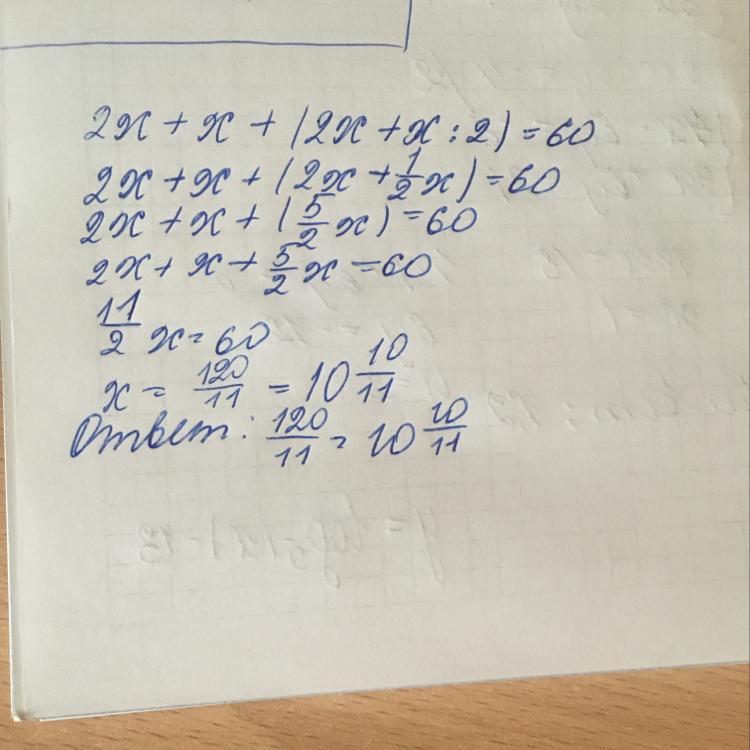 2x + x + (2x + x : 2) = 60
2x + x + (2x + 1/2 x) = 60
2x + x + (5/2 x) = 60
2x + x + 5/2 x = 60
11/2 x = 60
x = 120/11 = 10 10/11
Ответ: 120/11 = 10 10/11